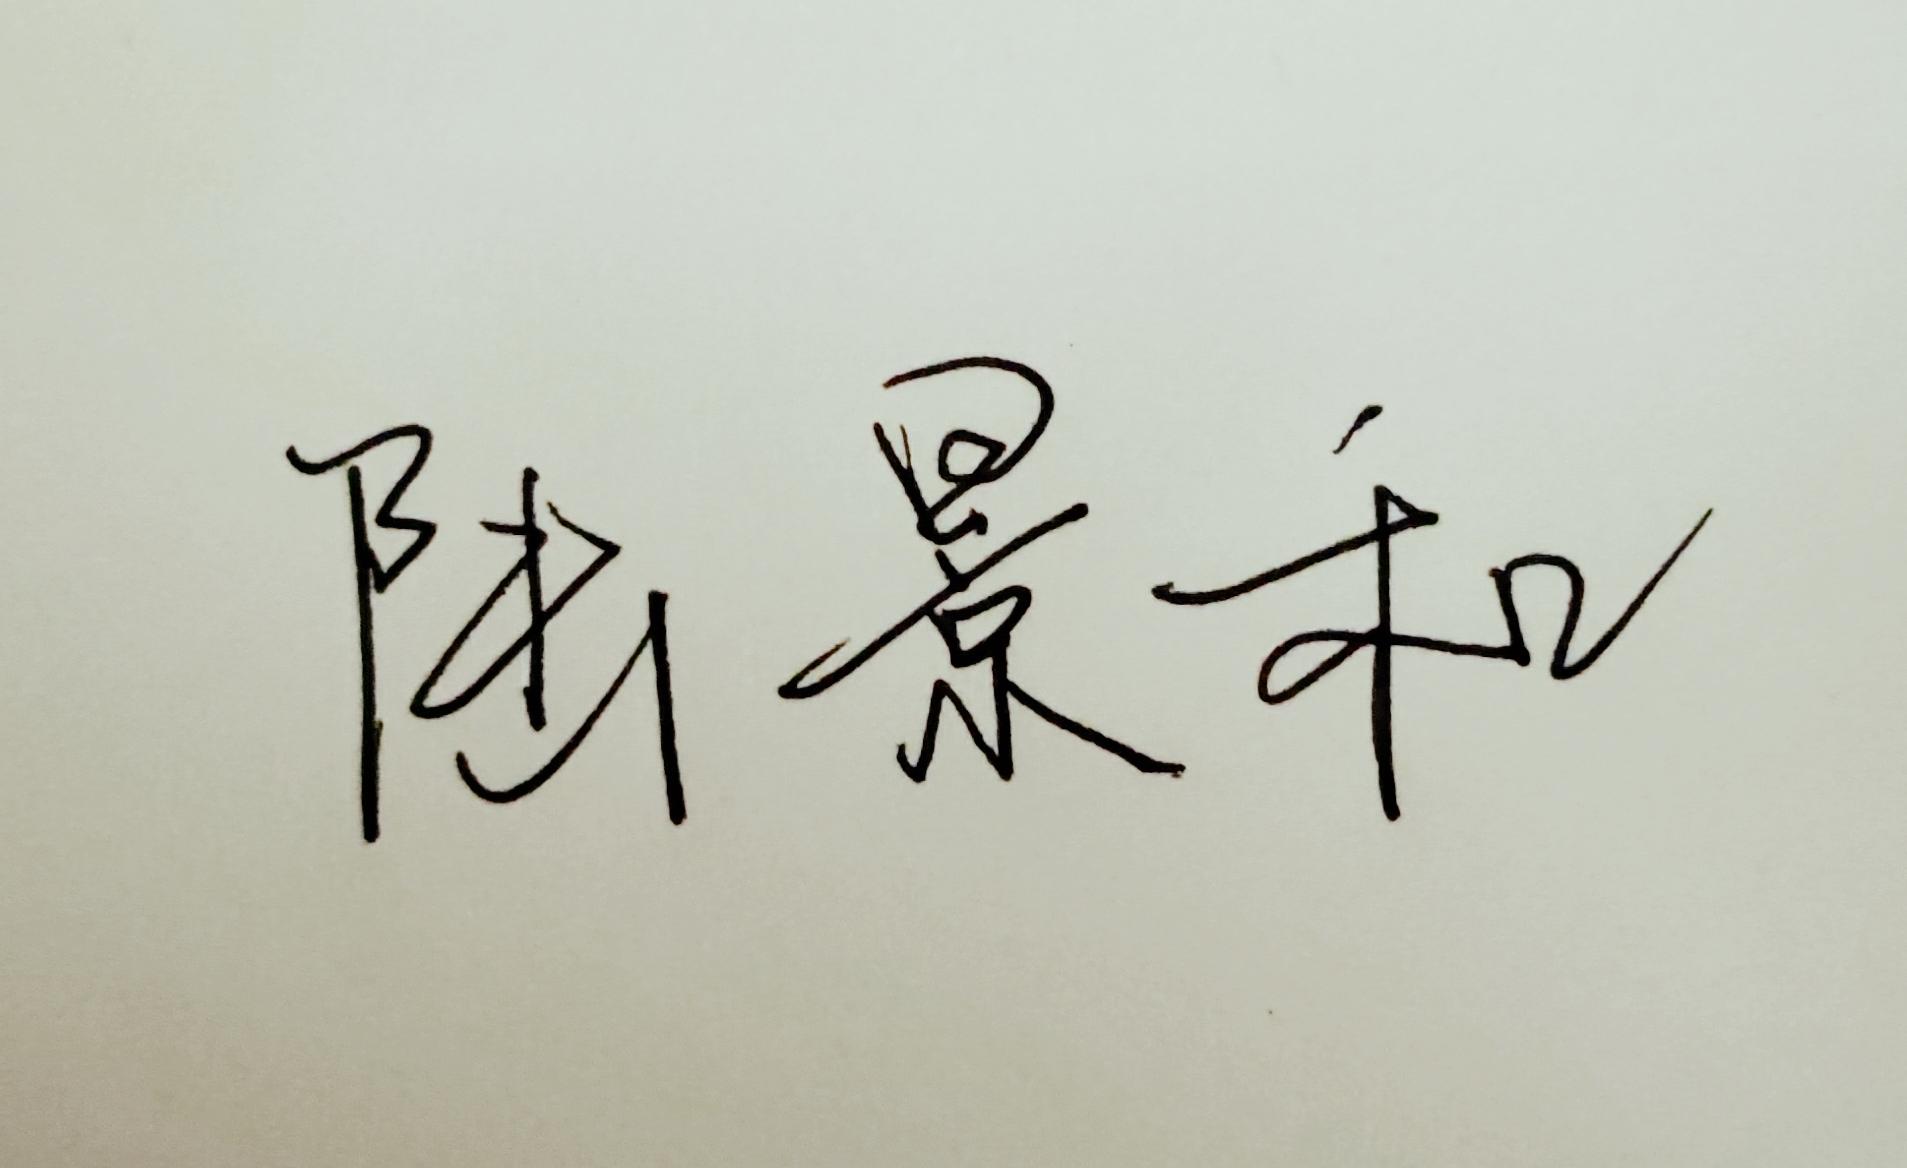 陆景和